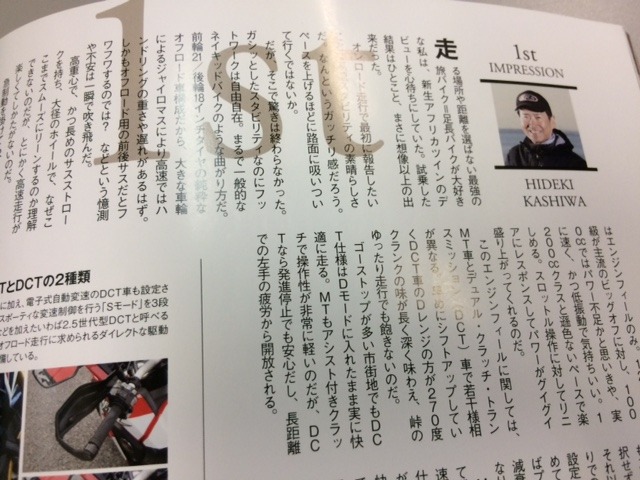 1st
1st
IMPRESSION
HIDEKI
KASHIWA
走る場所や距離を選ばない最強の
旅バイク=足長バイクが大好き
な私は、新生アフリカツインのデ
ビューを心待ちにしていた。試乗した
結果はひとこと、まさに想像以上の出
来だった。
オンロード走行で最初に報告したい
のがスタビリティの素晴らしさ
だ。なんというガッチリ感だろう。
ペースを上げるほどに路面に吸いつい
て行くではないか。
だが、そこで驚きは終わらなかった。
ガシッとしたスタビリティなのにフッ
トワークは自由自在。まるで一般的な
ネイキッドバイクのような曲がり方だ。
前輪21/後輪18インチタイヤの純粋な
オフロード車構成だから、大きな車輪
によるジャイロマスにより高速ではハ
ンドリングの重さや遅れがあるはず。
しかもオフロード用の前後サスだとフ
ワフワするのでは? などという憶測
や不安は一瞬で吹き飛んだ。
高重心で、かつ長めのサスストロー
クを持ち、大径のホイールで、なぜこ
こまでスムーズにリーンするのか理解
できないのだが、とにかく高速走行が
楽しくてしかたがないのだ。
はエンジンフィールのみ。1
級が主流のビッグオフに対し、100
0ccではパワー不足かと思いきや、実
に速く、かつ低振動で気持ちいい。1
200ccクラスと遜色ないペースで楽
しめる。スロットル操作に対してリニ
アにレスポンスしてパワーがグイグイ
盛り上がってくれるのだ。
このエンジンフィールに関しては、
MT車とデュアル クラッチ・トラン
スミッション(DCT)車で若干様相
が異なる。早めにシフトアップしてい
くDCT車のDレンジの方が270度
クランクの味が長く深く味わえ、峠の
ゆったり走行でも飽きないのだ。
ゴーストップが多い市街地でもDC
T仕様はDモードに入れたまま実に快
適に走る。MTもアシスト付きクラッ
チで操作性が非常に軽いのだが、DC
Tなら発進停止でも安心だし、長距離
での左手の疲労から開放される。
TとDCTの2種類
に加え、電子式自動変速のDCT車も設定さ
スポーティな変速制御を行う「Sモード」を3段
などを加えたいわば2.5世代型DCTと呼べる
オフロード走行に求められるダイレクトな駆動
備している。